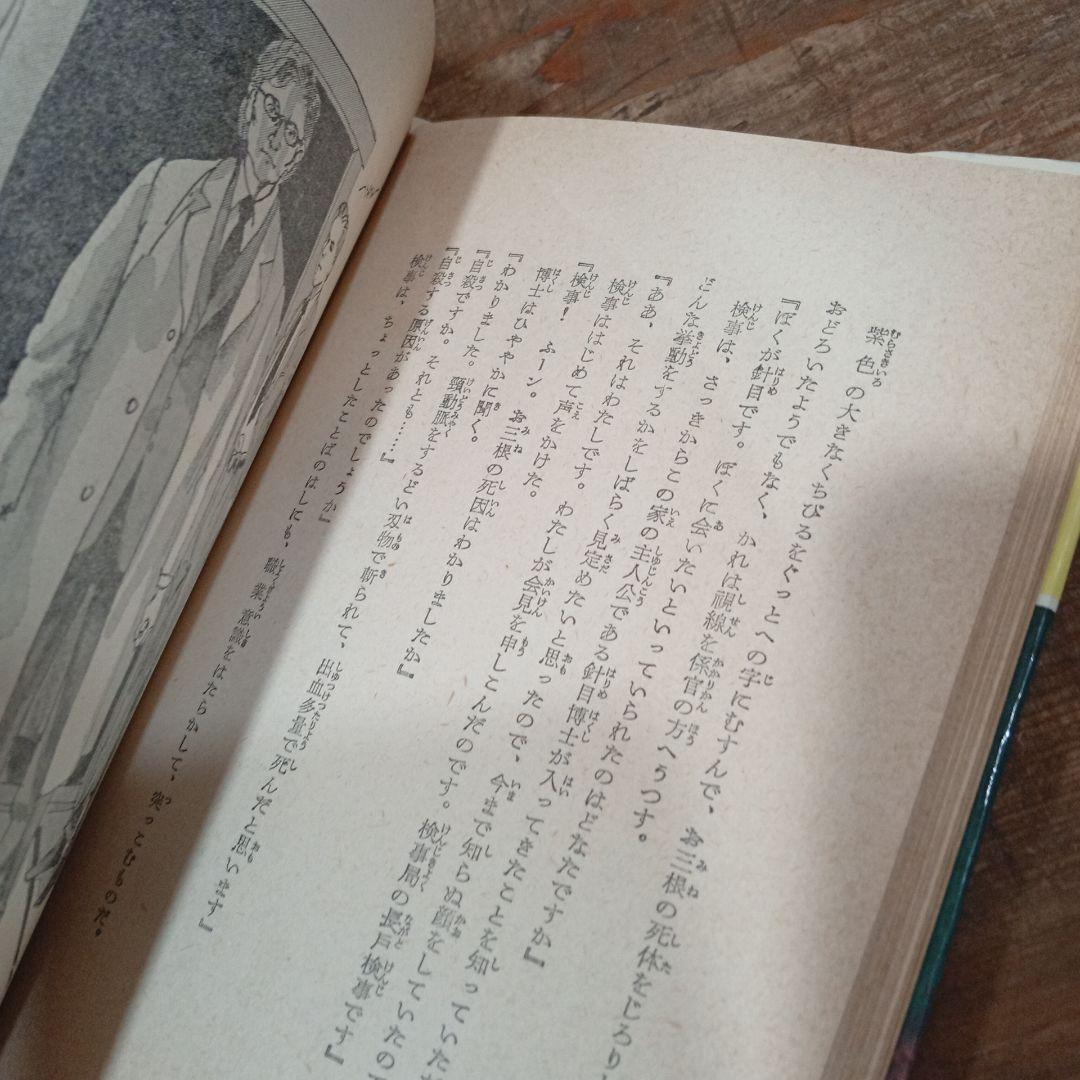 紫色の大きなくちびるをぐっとへの字にむすんで、お三根の死体をじろり
おどろいたようでもなく、かれは視線を係官の方へうつす。
『ぼくが針目です。ぼくに会いたいといっていられたのはどなたですか』
検事は、さっきからこの家の主人公である針目博士が入ってきたことを知っていた
どんな挙動をするかをしばらく見定めたいと思ったので、今まで知らぬ顔をしていたの
『ああ、それはわたしです。わたしが会見を申しこんだのです。検事局の長戸検事です』
検事ははじめて声をかけた。
『検事！　ふーン。お三根の死因はわかりましたか』
博士はひややかに聞く。
『わかりました。頸動脈をするどい刃物で斬られて、出血多量で死んだと思います』
『自殺ですか。それとも……』
『自殺する原因があったのでしょうか』
検事は、ちょっとしたことばのはしにも、職業意識をはたらかして、突っこむものだ。